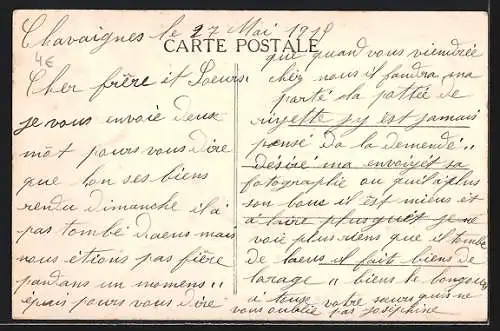 Chavaignes le 27 Mai 1918
CARTE POSTALE
4€
Cher frère et Soeurs
je vous envoie deux
môt pours vous dire
que lon ses biens
rendu dimanche il a
pas tombé daens mais
nous etions pas fière
pandans un momens ,,
épuis pours vous dire
que quand vous viendrée
chéz nous il faudra ma
porté la pattée de
riyette jy est jamais
pensé da la demendé ,,
désiré ma envoiyét sa
fotographie ou quil a plus
son bous il est mieus et
a laire plus guét je ne
voie plus riens que il tombe
de laens il fait biens de
larage ,, biens le bonjours
a tous votre soeurs qui ne
vous oublie pas joséphine